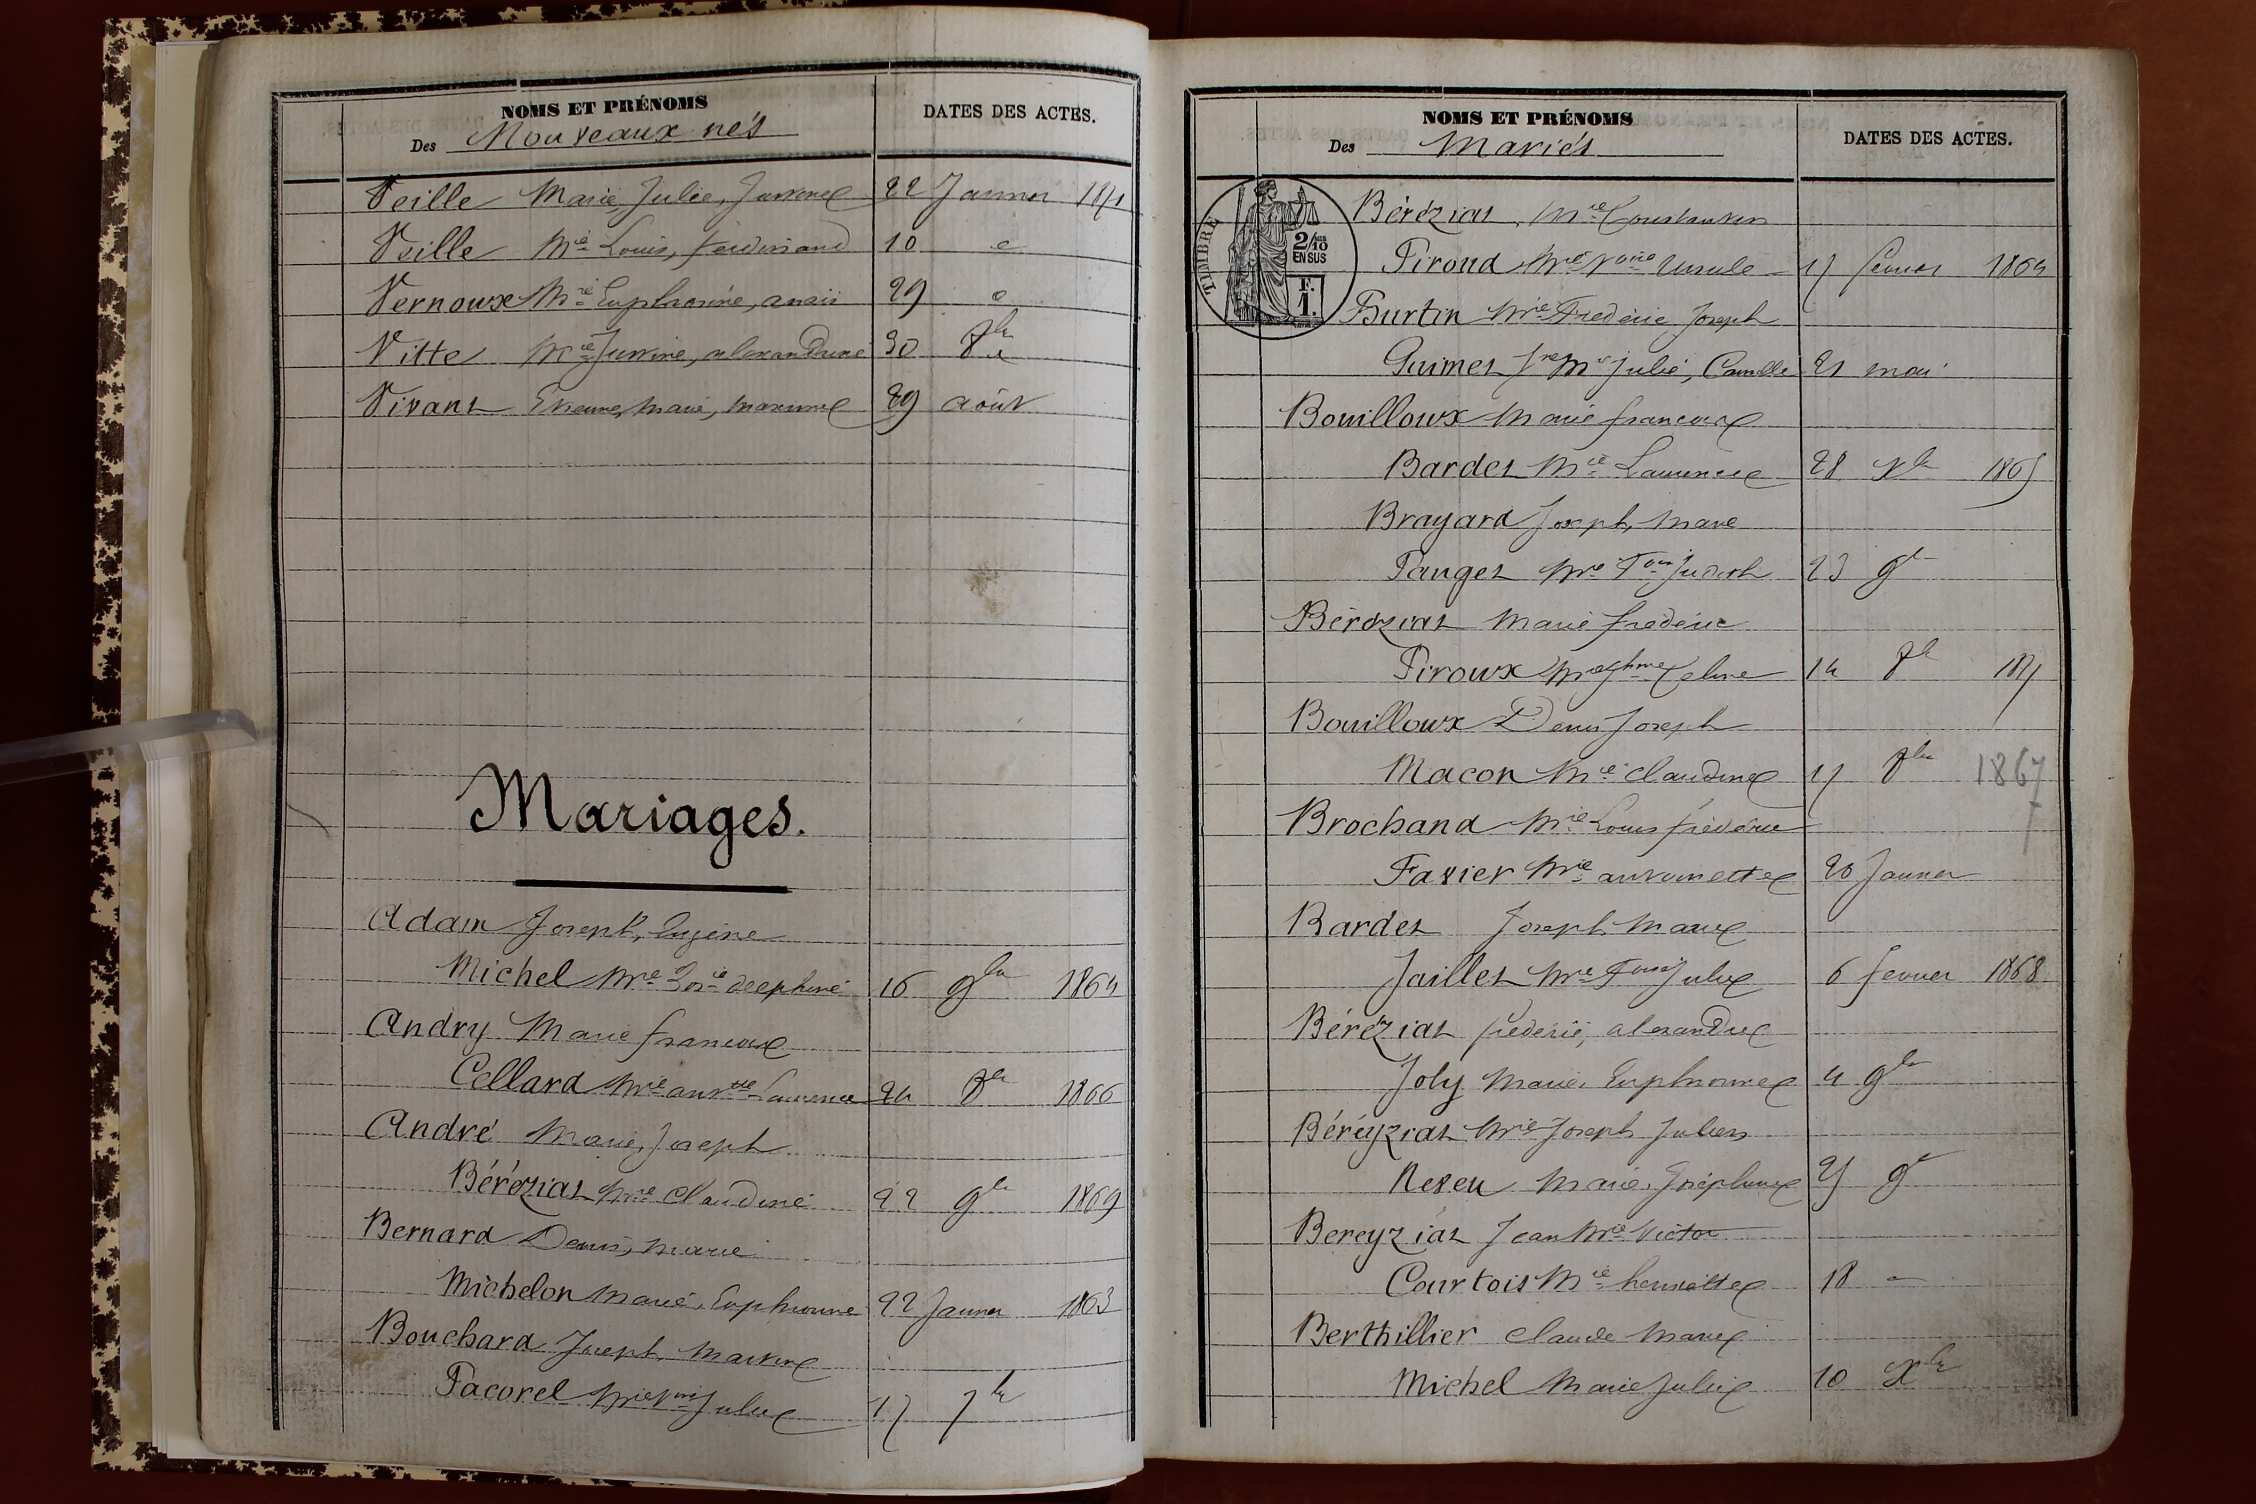 NOMS ET PRÉNOMS
Des Nouveaux nés
DATES DES ACTES.
Veille Marie, Julie, 22 Janvier 1871
Veille Mie Louis, ferdinand 10
Vernoux Mie Euphrosine, anaïs 29
Vitte Mie Justine, alexandrine 30 8bre
Vivant Etienne, Marie, maxime 29 août
Mariages.
Adam Joseph, Eugène
Michel Mie delphine 16 9bre 1864
Andry Marie francois
Cellard Mie anttte Laurence 24 8bre 1866
André Marie, Joseph
Béréziat Mie Claudine 22 9bre 1869
Bernard Denis, marie
Michelon Marie, Euphrosine 22 Janvier 1863
Bouchard Joseph
Pacorel Julie 17 7bre
NOMS ET PRÉNOMS
Des Mariés
DATES DES ACTES.
TIMBRE
2/10
EN SUS
F.
1.
Béréziat, Mie Constantin
Piroud Mie Ursule 17 fevrier 1864
Burtin Mie Frederic Joseph
Guimet Mie Julie, Camille 21 mai
Bouilloux Marie francois
Bardet Mie Laurence 28 Xbre 1865
Brayard Joseph, Marie
Panget Mie Judith 23 9bre
Béréziat Marie frédéric
Piroux Celine 14 8bre
Bouilloux Denis Joseph
Macon Mie Claudine 17 8bre 1867
Brochand Mie Louis frédéric
Favier Mie antoinette 20 Janvier
Bardet Joseph Marie
Jaillet Mie Julie 6 fevrier 1868
Béréziat frederic, alexandre
Joly Marie, Euphrosine 4 9bre
Béréyziat Mie Joseph Julien
Neveu Marie, Joséphine 25 9bre
Bereyziat Jean Mie Victor
Courtois Mie henriette 18
Berthillier Claude Marie
Michel Marie Julie 10 Xbre